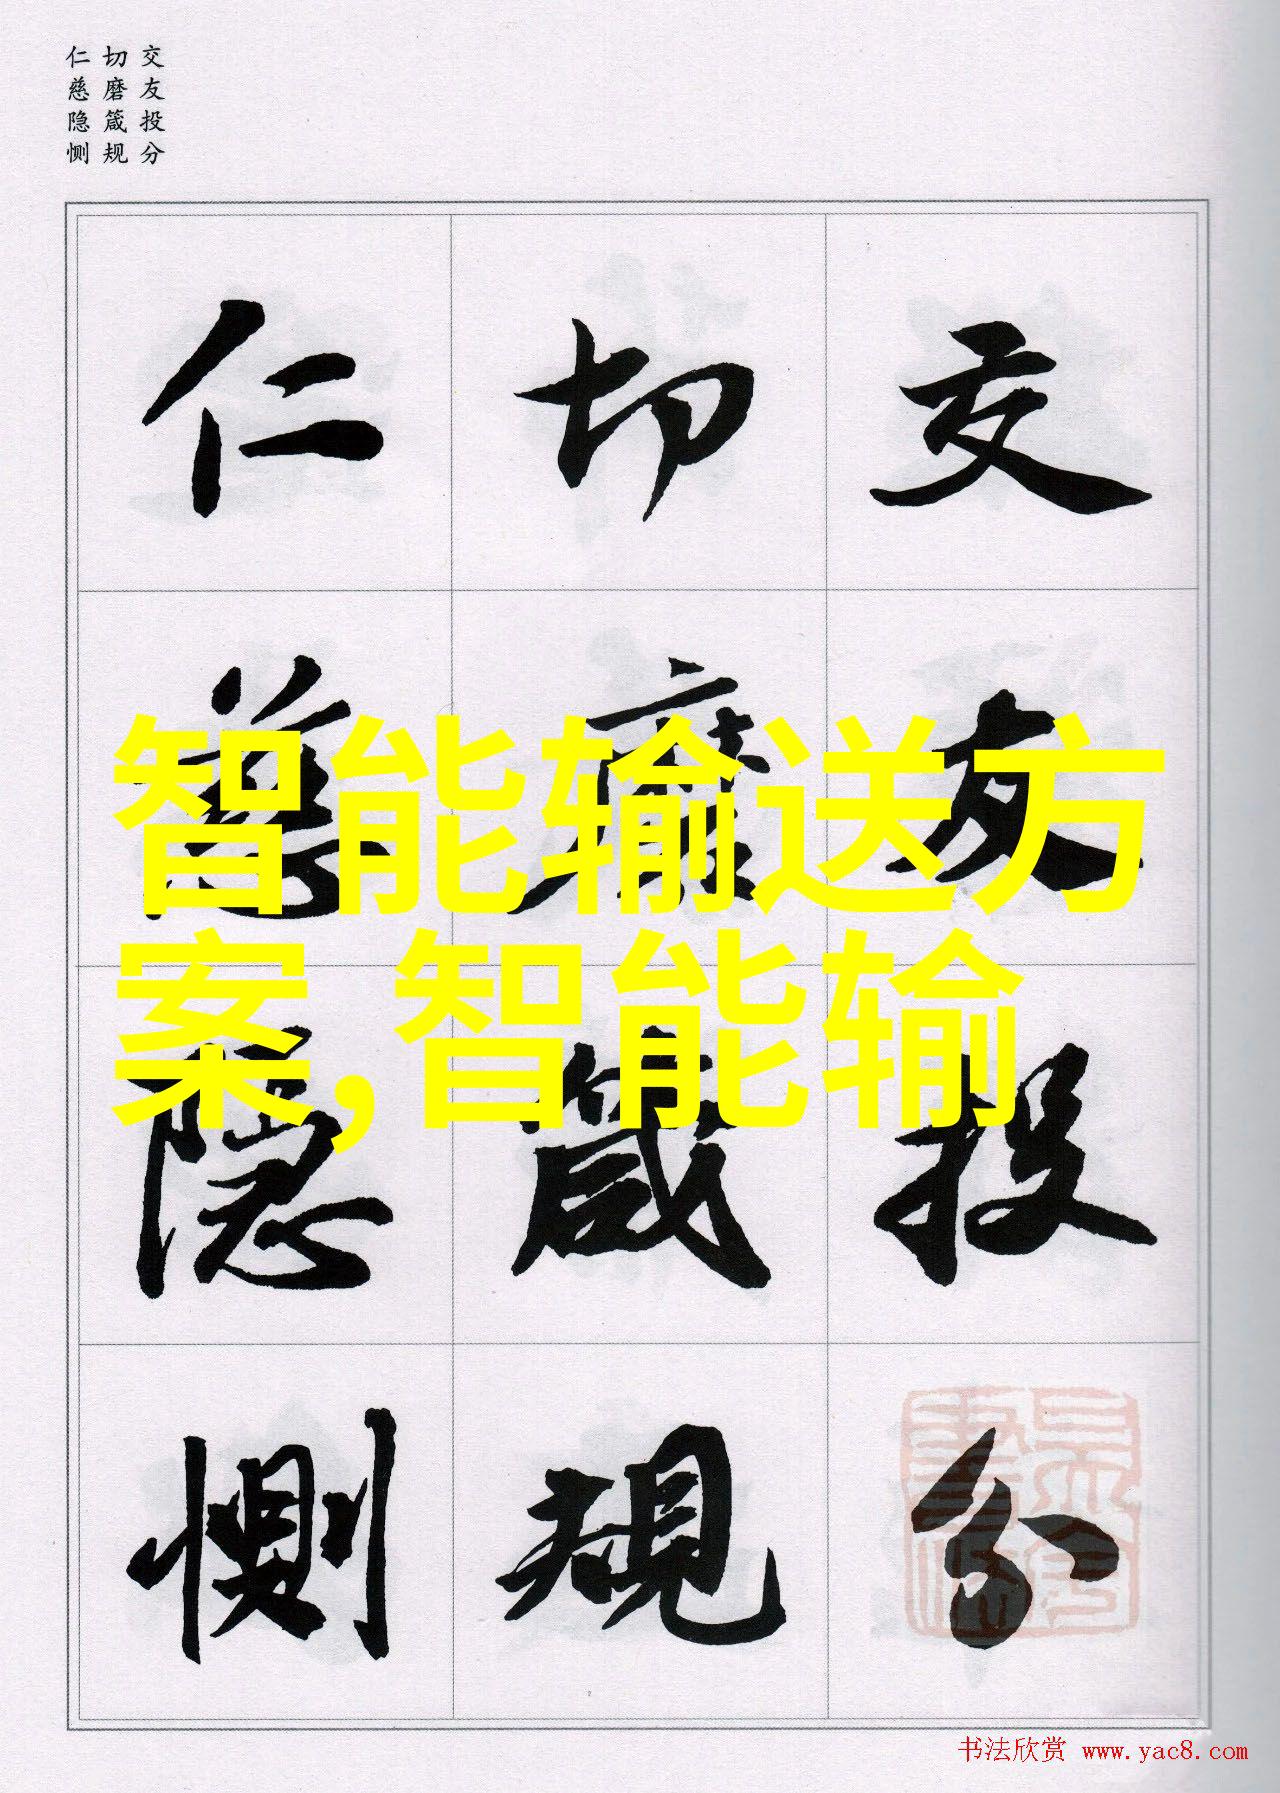 交友投分
切磨箴规
仁慈隐恻
交友投分
切磨箴规
仁慈隐恻
智能输送方
案,智能输
书法欣赏 www.yac8.com